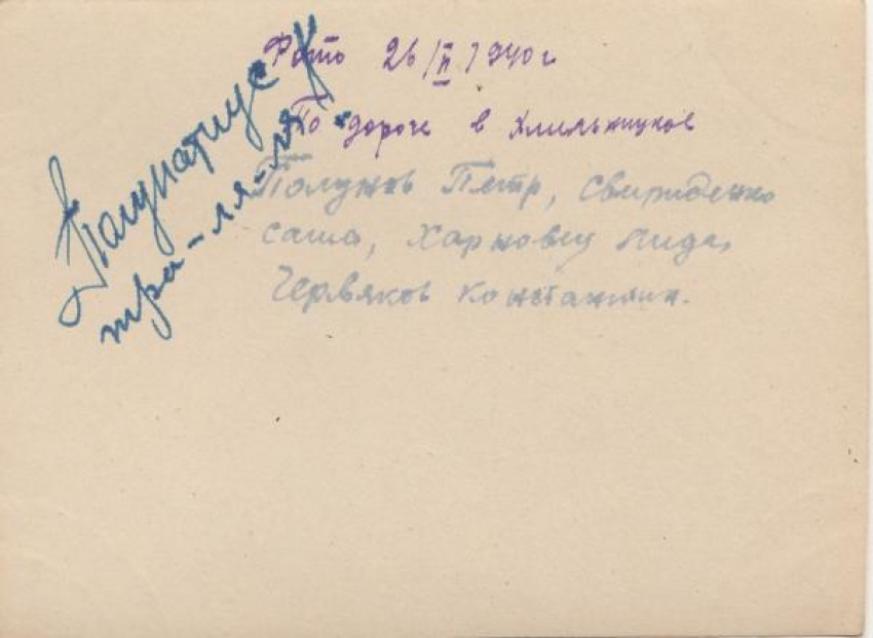 Фото 26/II 1940 г
По дороге в
Полунов Петр, Свириденко
Саша, Харковец Лида,
Червяков Константин.
Полунатиус
тра-ля-ля